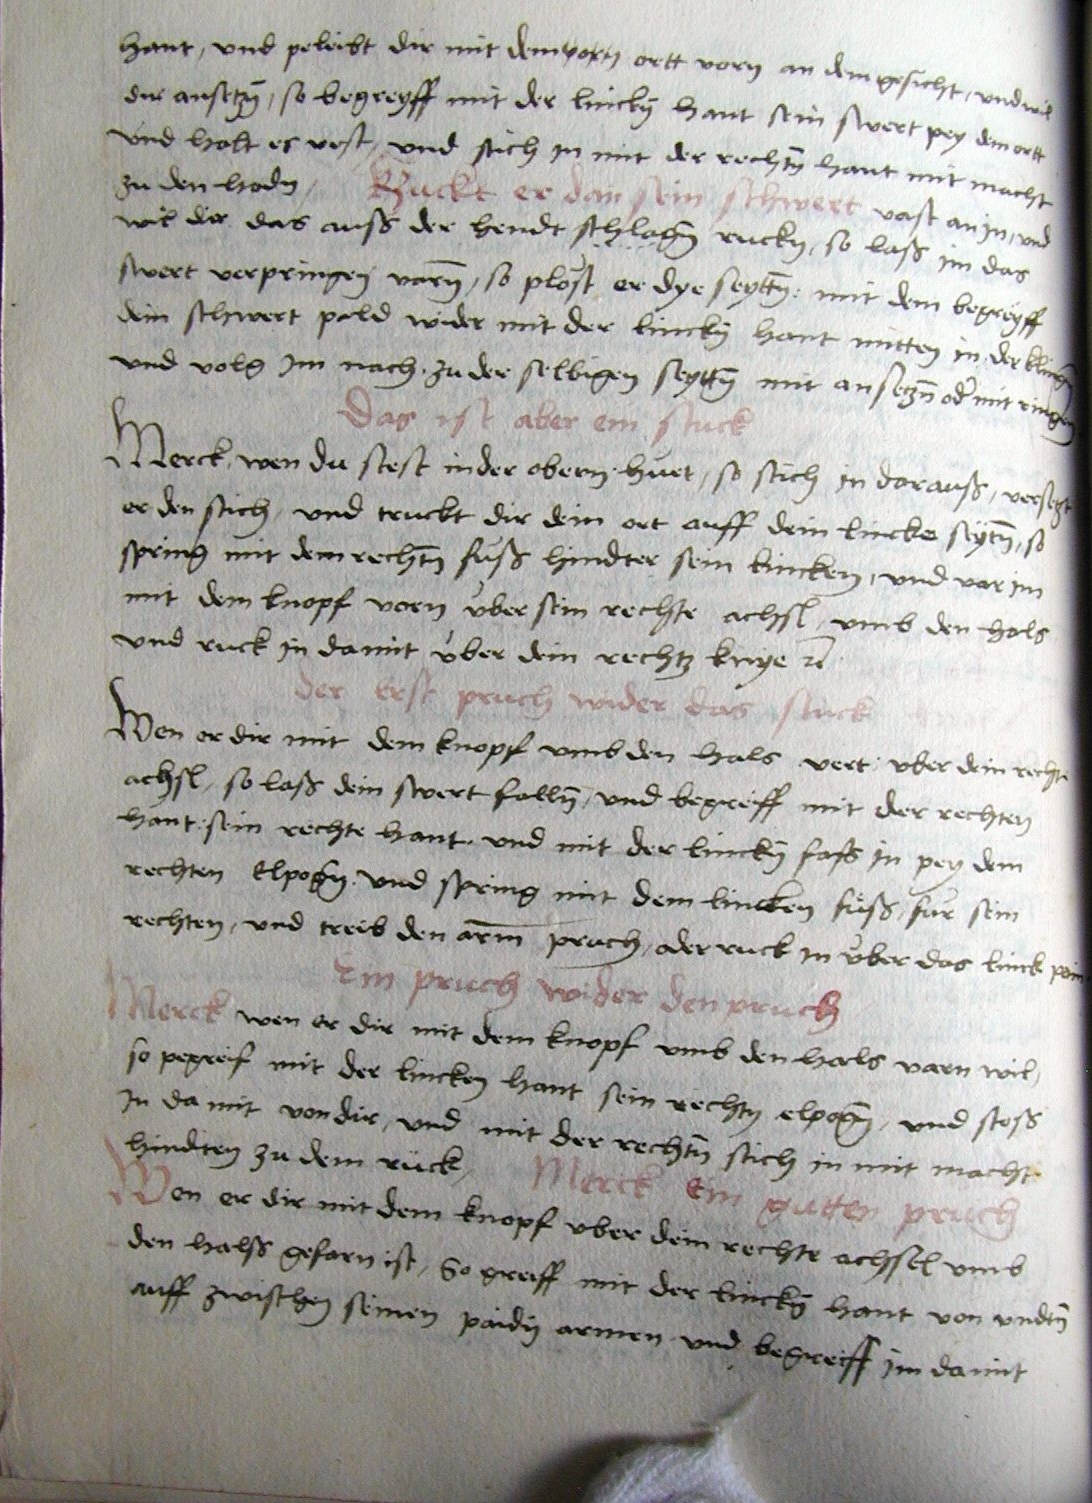 hant, und peleibt dir mit dem vorn ortt vorn an dem gesicht, und wil
dir ansetzn̄, so begreyff mit der linckn̄ hant sein swert pey dem ortt
und halt es vest, und stich in mit der rechtn̄ hant mit macht
zu den hodn, Ruckt er dan sein schwert vast an in, und
wil dir das auß der hendt schlagn̄ ruckn, so laß im das
swert verpringen varn̄, so plost er dye seyttn̄: mit dem begreyff
dein schwert pald wider mit der linckn̄ hant mitten in der klingn̄
und volg im nach zu der selbigen seyttn̄ mit ansetzn̄ od' mit ringen
Das ist aber ein stuck
Merck, wen du stest in der obern huet, so stich in darauß, versetzt
er den stich, und truckt dir dein ort auff dein lincke seytn̄, so
spring mit dem rechtn̄ fuß hindter sein lincken, und var im
mit dem knopf vorn über sein rechte achsl, umb den hals
und ruck in damit über dein rechtz knye
der erst pruch wider das stuck
Wen er dir mit dem knopf umb den hals vert uber dein rechte
achsl, so laß dein swert falln̄, und begreiff mit der rechten
hant sein rechte hant und mit der linckn̄ faß in pey dem
rechten Elpogn̄ und spring mit dem lincken füß, fur sein
rechten, und treib den arm̄ pruch, oder ruck in über das linck pein
Ein pruch wider den pruch
Merck wen er dir mit dem knopf umb den hals varn wil,
so pegreif mit der lincken hant sein rechtn elpogn̄, und stoß
In da mit von dir, und mit der rechtn̄ stich in mit macht
hindten zu dem rück, Merck Ein gutten pruch
Wen er dir mit dem knopf uber dein rechte achsel umb
den halß gefarn ist, So greiff mit der linckn̄ hant von undtn̄
auff zwischen seinen paidn armen und begreiff im damit